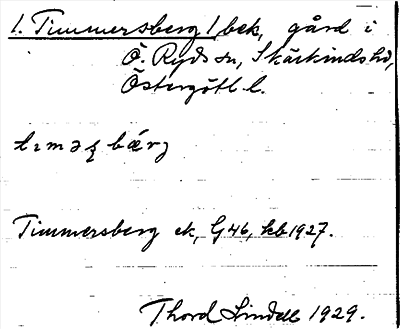 1. Timmersberg 1/ bek, gård i
Ö. Ryds sn, Skärkinds hd,
Östergötl. l.
Timmersberg ek, G46, kb 1927.
Thord Lindell 1929.